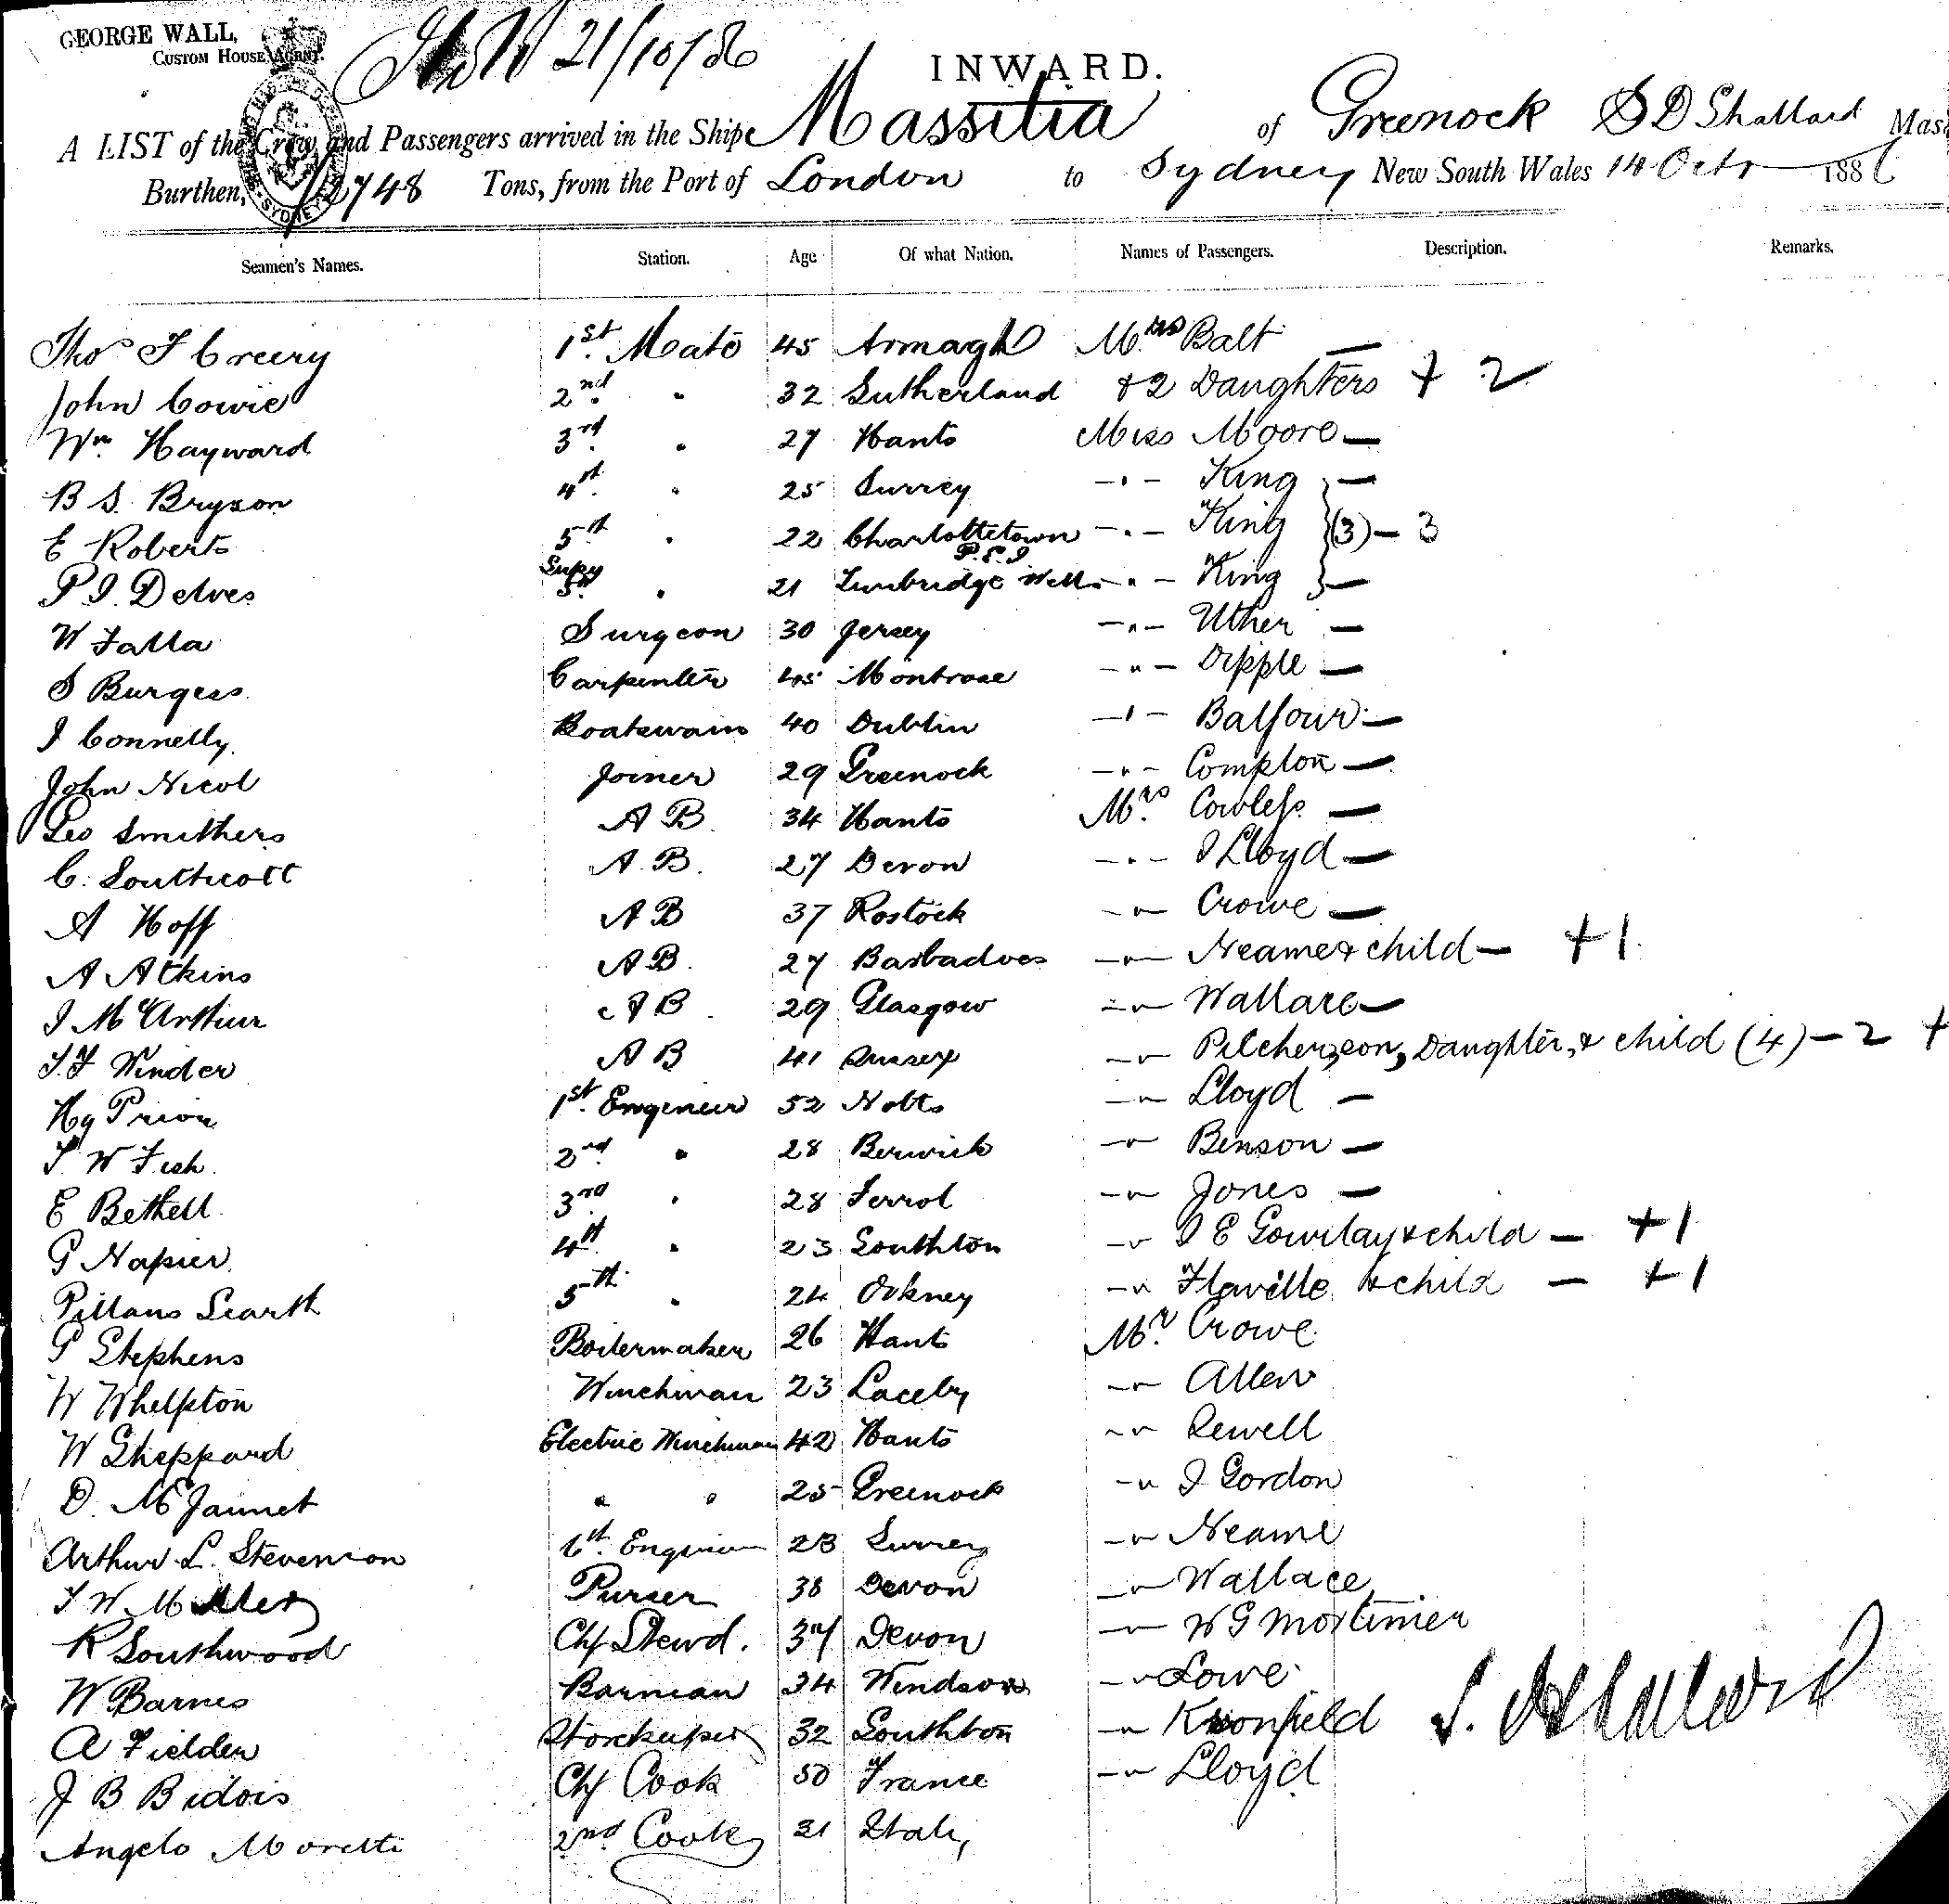 GEORGE WALL,
CUSTOM HOUSE AGENT.
21/10/86
INWARD.
A LIST of the Crew and Passengers arrived in the Ship Massilia of Greenock S D Shallard Mas
Burthen, 2748 Tons, from the Port of London to Sydney New South Wales 14 Octr 1886
Seamen's Names. Station. Age Of what Nation. Names of Passengers. Description. Remarks.
Thos F Creery 1st. Mate 45 Armagh Mrs Balt —
John Cowie 2nd. " 32 Sutherland & 2 Daughters + 2
Wm Hayward 3rd. " 27 Hants Miss Moore —
B S. Bryson 4th. " 25 Surrey - " - King } —
E Roberts 5th " 22 Charlottetown P.E.I - " - King } (3) — 3
P. I. Delves Supy 5th " 21 Tunbridge Wells - " - King } —
W Falla Surgeon 30 Jersey - " - Uther —
S Burgess Carpenter 45 Montrose - " - Dipple —
J Connelly Boatswain 40 Dublin - " - Balfour —
John Nicol Joiner 29 Greenock - " - Compton —
Geo Smithers A B 34 Hants Mrs. Cowless —
C. Southcott A. B. 27 Devon - " - I Lloyd —
A Hoff A B 37 Rostock - " - Crowe —
A Atkins A B. 27 Barbadoes - " - Neame & child — + 1
J McArthur A B 29 Glasgow - " - Wallace —
T. F Winder A B 41 Sussex - " - Pilcher, son, Daughter, & child (4) — 2 +
Hy Prior 1st. Engineer 52 Notts - " - Lloyd —
T W Fish. 2nd. " 28 Berwick - " - Benson —
E Bethell 3rd. " 28 Ferrol - " - Jones —
G Napier 4th. " 23 Southton - " - I E Gourlay & child — + 1
Pillans Scarth 5th " 24 Orkney - " - Flaville & child — + 1
G Stephens Boilermaker 26 Hants Mr. Crowe
W Whelpton Winchman 23 Laceby - " - Allen
W Sheppard Electric Winchman 42 Hants - " - Sewell
D. McJannet " " 25 Greenock - " - J Gordon
Arthur L. Stevenson 6th. Engineer 23 Surrey - " - Neame
T W Miller Purser 38 Devon - " - Wallace
R Southwood Chf Stewd. 37 Devon - " - W G Mortimer
W Barnes Barman 34 Windsor - " - Lowe
A Fielder Storekeeper 32 Southton - " - Kronfield S. D Shallard
J B Bidois Chf Cook 50 France - " - Lloyd
Angelo Moretti 2nd. Cook 31 Italy